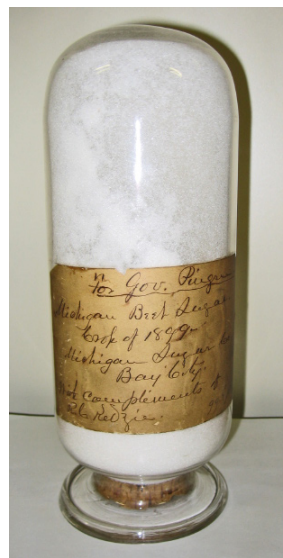 For Gov. Pingree
Michigan Beet Sugar
Crop of 1899
Michigan Sugar Co
Bay City
with compliments of
Kedzie.